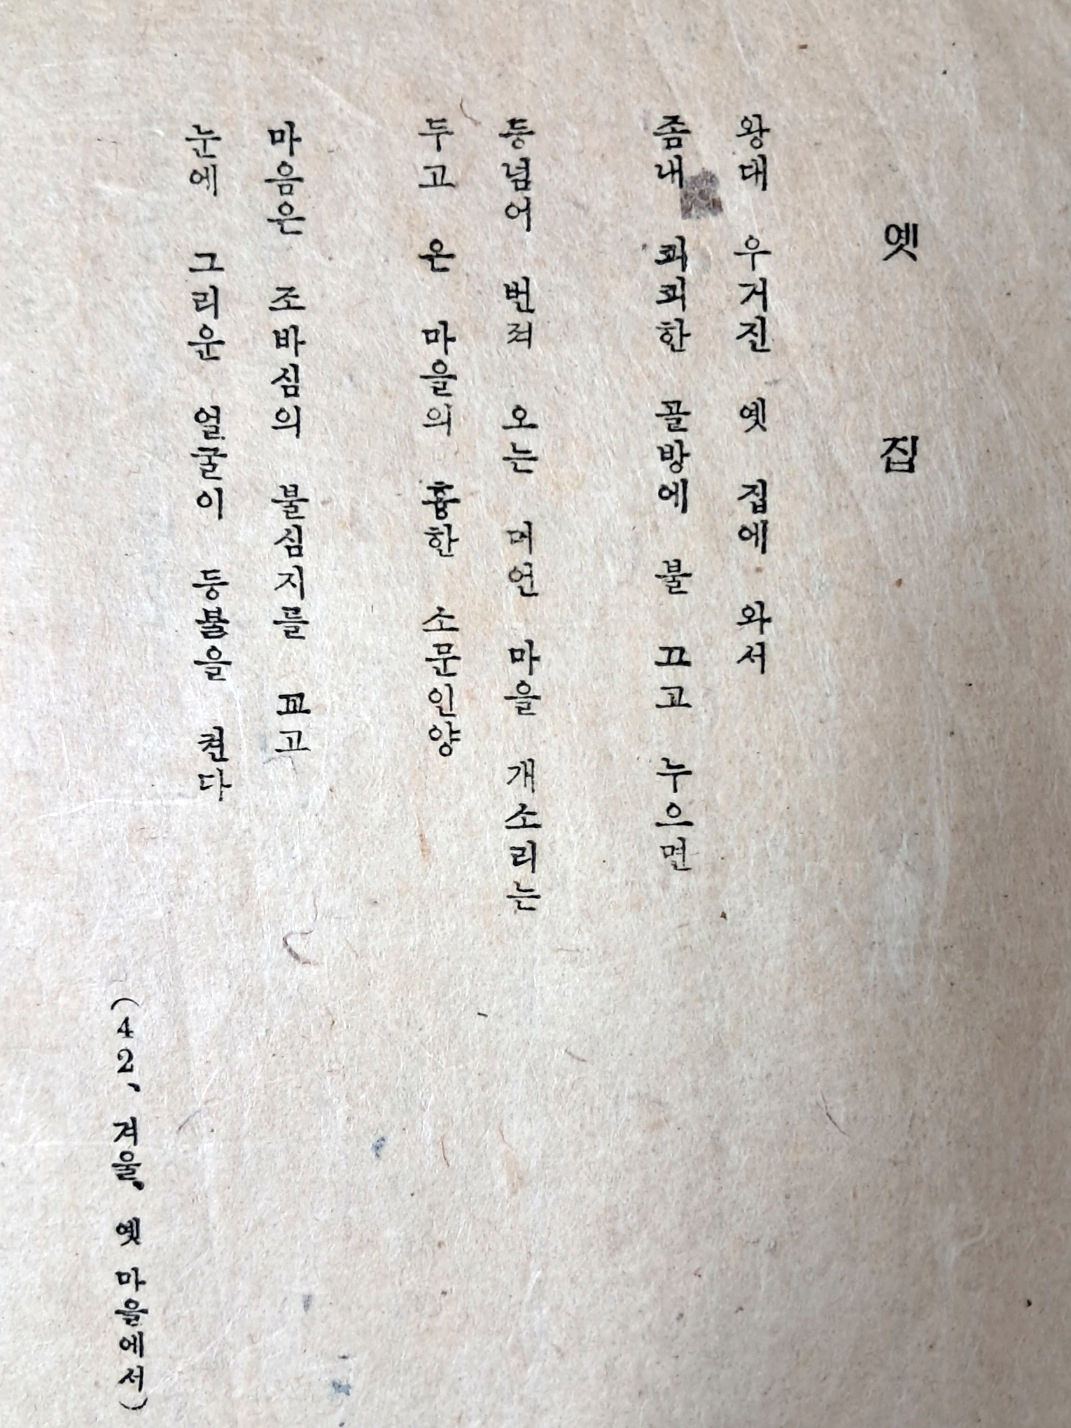 옛 집
왕대 우거진 옛 집에 와서
좀내 퇴퇴한 골방에 불 끄고 누으면
등넘어 번저 오는 머언 마을 개소리는
두고 온 마을의 흉한 소문인양
마음은 조바심의 불심지를 꼬고
눈에 그리운 얼굴이 등불을 켠다
(42、겨울、옛 마을에서)